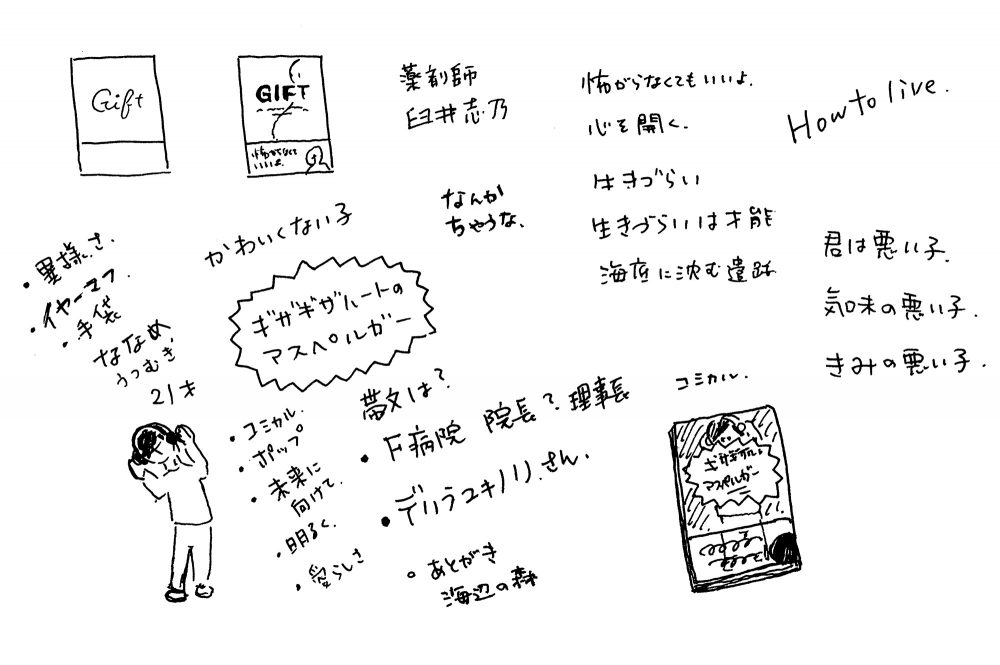 Gift
GIFT
怖がらなくて
いいよ.
薬剤師
臼井志乃
怖がらなくてもいいよ.
心を開く.
How to live.
なんか
ちゃうな.
生きづらい
生きづらいは才能
海底に沈む遺跡
君は悪い子.
気味の悪い子.
きみの悪い子.
かわいくない子
・異様さ.
・イヤーマフ.
・手袋
ななめ
うつむき.
21才
ギザギザハートの
アスペルガー
・コミカル.
・ポップ
・未来に
向けて.
・明るく.
・愛らしさ
帯文は?
・F病院 院長? 理事長
・デハラユキノリさん.
・あとがき
海辺の森
コミカル.
ギザギザハートの
アスペルガー